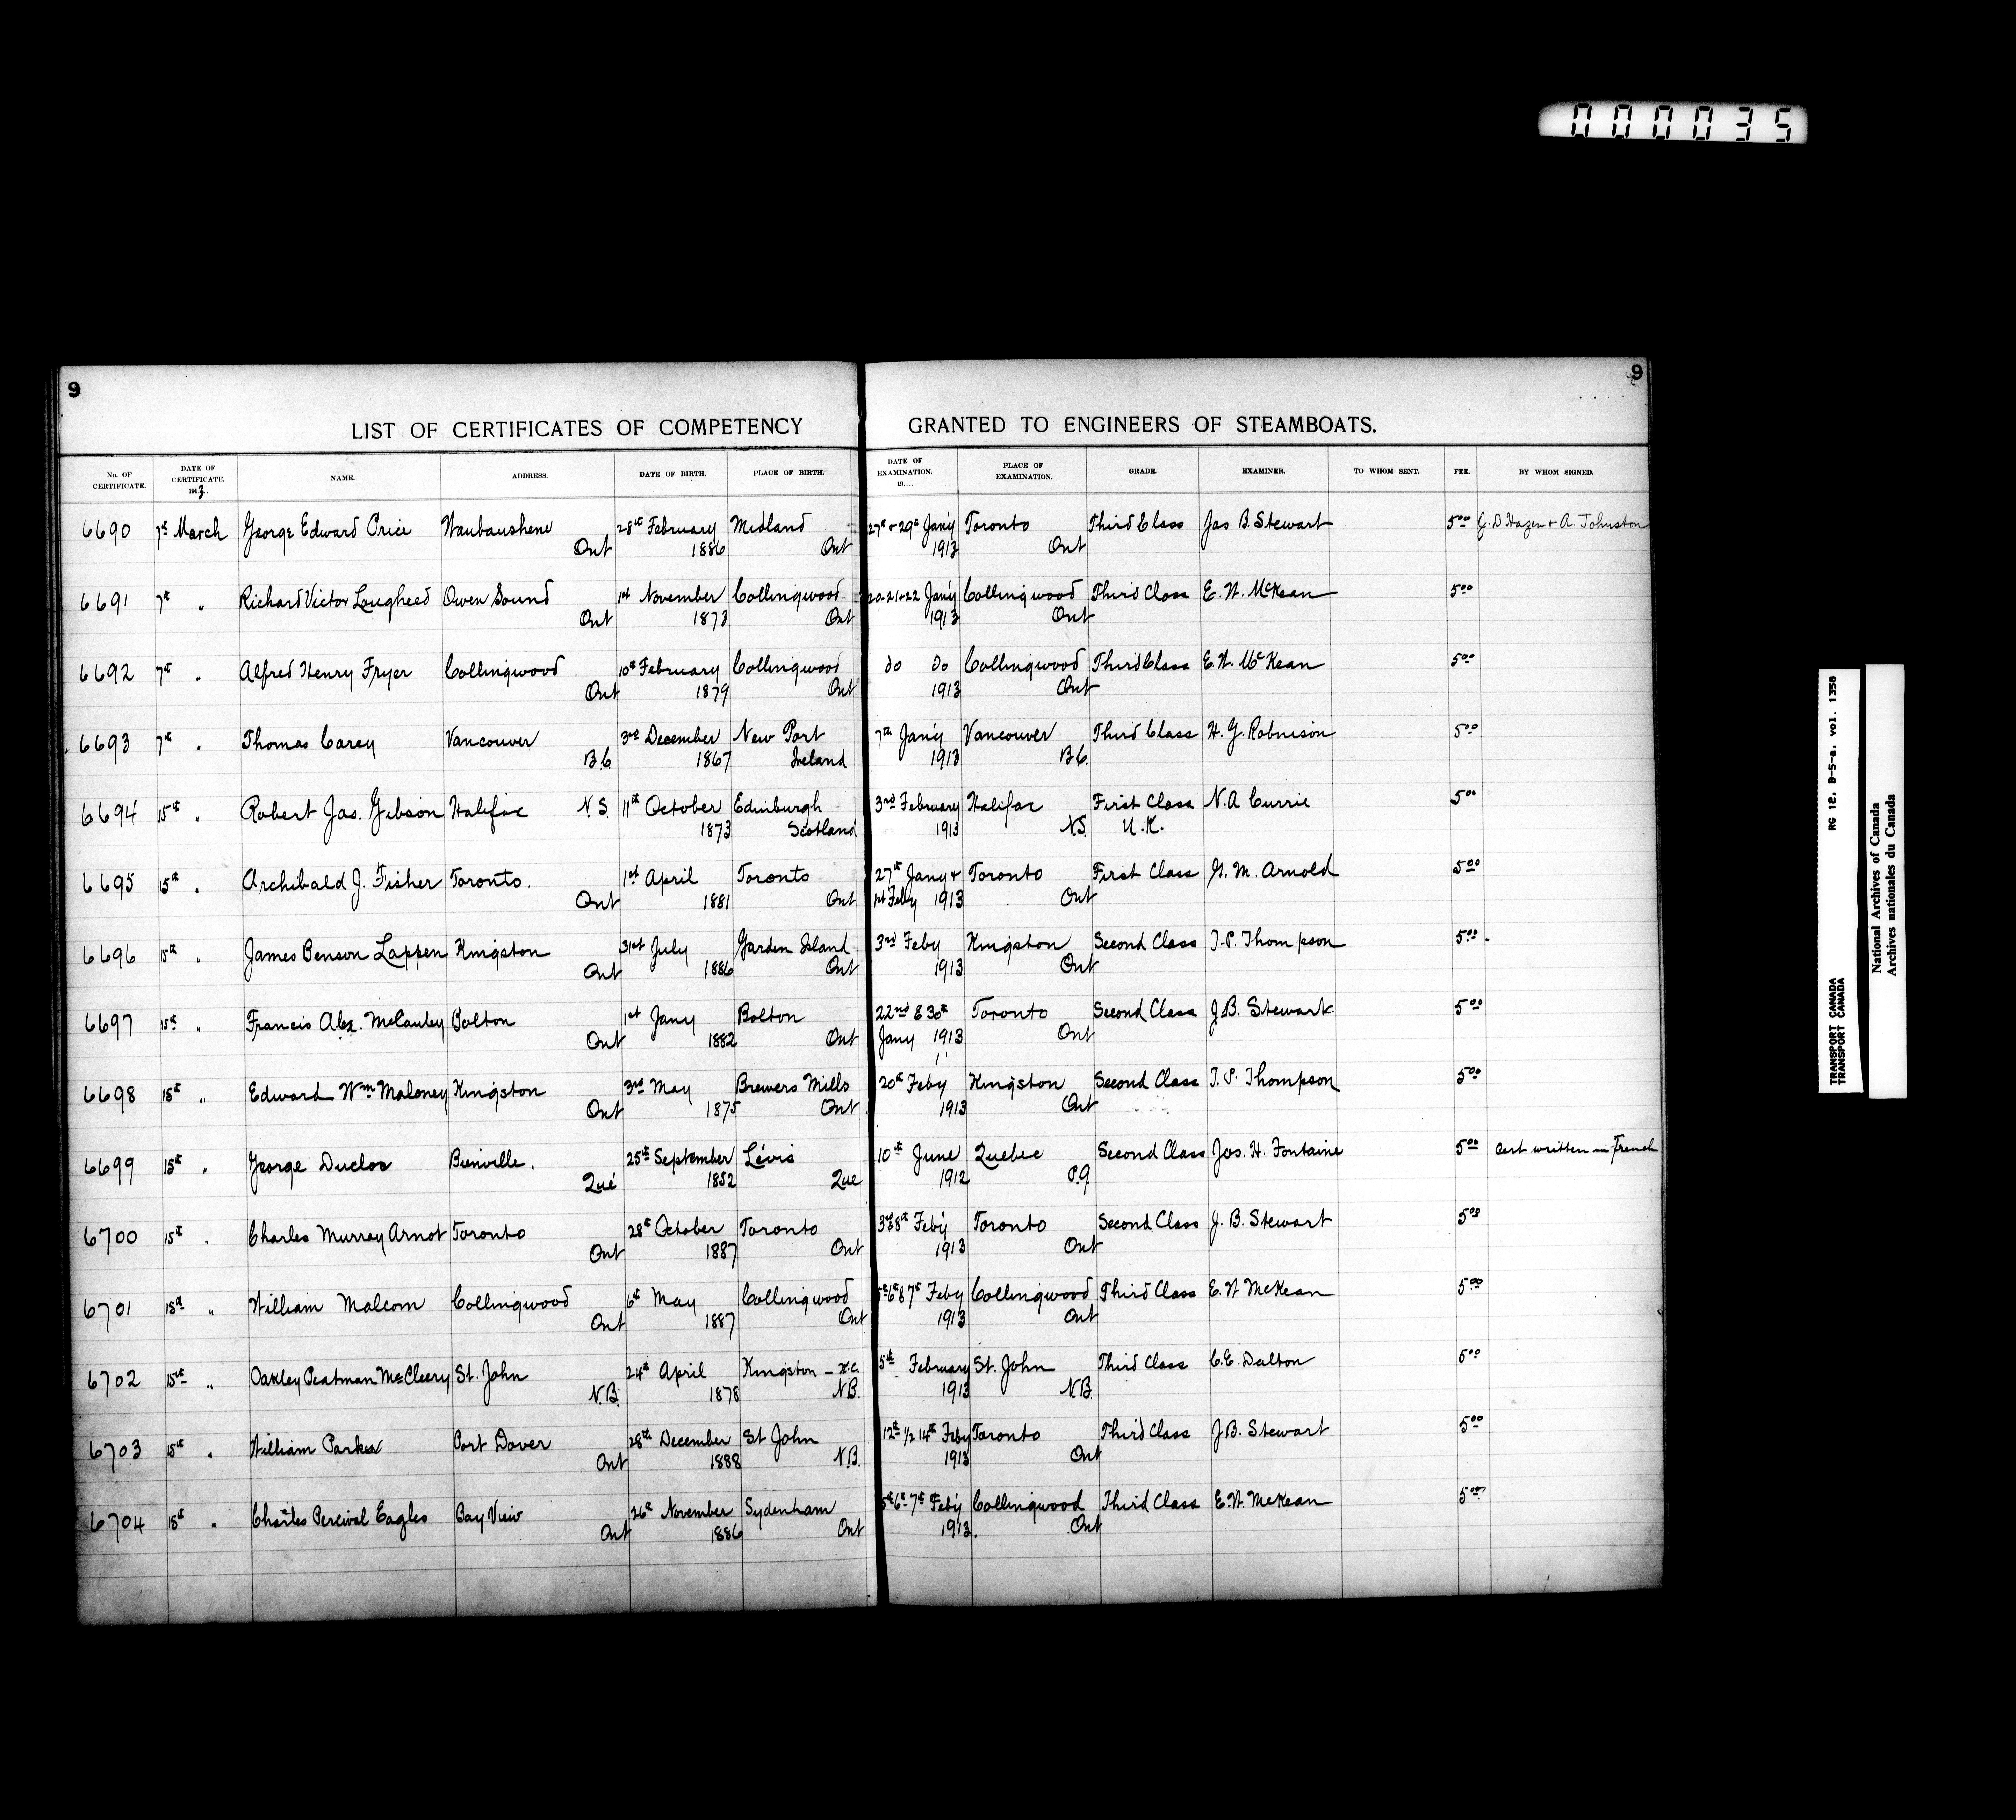 000035
9 9
LIST OF CERTIFICATES OF COMPETENCY GRANTED TO ENGINEERS OF STEAMBOATS.
No. OF CERTIFICATE. DATE OF CERTIFICATE. 1913. NAME. ADDRESS. DATE OF BIRTH. PLACE OF BIRTH. DATE OF EXAMINATION. 19.... PLACE OF EXAMINATION. GRADE. EXAMINER. TO WHOM SENT. FEE. BY WHOM SIGNED.
6690 7th March George Edward Price Waubaushene 28th February Midland 27th & 29th Jan'y Toronto Third Class Jas B. Stewart 5.00 J. D Hazen & A. Johnston
Ont 1886 Ont 1913 Ont
6691 7th " Richard Victor Lougheed Owen Sound 1st November Collingwood 20-21&22 Jan'y Collingwood Third Class E. W. McKean 5.00
Ont 1873 Ont 1913 Ont
6692 7th " Alfred Henry Fryer Collingwood 10th February Collingwood do do Collingwood Third Class E. W. McKean 5.00
Ont 1879 Ont 1913 Ont
6693 7th " Thomas Carey Vancouver 3rd December New Port 7th Jan'y Vancouver Third Class H. G. Robinson 5.00
B.C. 1867 Ireland 1913 B.C.
6694 15th " Robert Jas. Gibson Halifax N.S. 11th October Edinburgh 3rd February Halifax First Class N. A Currie 5.00
1873 Scotland 1913 N.S. U.K.
6695 15th " Archibald J. Fisher Toronto. 1st April Toronto 27th Jany & Toronto First Class G. M. Arnold 5.00
Ont 1881 Ont 1st Feby 1913 Ont
6696 15th " James Benson Lappen Kingston 31st July Garden Island 3rd Feby Kingston Second Class T. P. Thompson 5.00
Ont 1886 Ont 1913 Ont
6697 15th " Francis Alex. McCauley Bolton 1st Jany Bolton 22nd & 30th Toronto Second Class J B. Stewart 5.00
Ont 1882 Ont Jany 1913 Ont
6698 15th " Edward Wm Maloney Kingston 3rd May Brewers Mills 20th Feb'y Kingston Second Class T. P. Thompson 5.00
Ont 1875 Ont 1913 Ont
6699 15th " George Duclos Bienville. 25th September Lévis 10th June Quebec Second Class Jos. H. Fontaine 5.00 Cert written in French
Qué 1852 Que 1912 P.Q.
6700 15th " Charles Murray Arnot Toronto 28th October Toronto 3rd & 8th Feb'y Toronto Second Class J. B. Stewart 5.00
Ont 1887 Ont 1913 Ont
6701 15th " William Malcom Collingwood 6th May Collingwood 5th 6th & 7th Feby Collingwood Third Class E. W McKean 5.00
Ont 1887 Ont 1913 Ont
6702 15th " Oakley Peatman McCleery St. John 24th April Kingston – K.C. 5th February St. John Third Class C. E. Dalton 5.00
N.B. 1878 N.B. 1913 N.B.
6703 15th " William Parker Port Dover 28th December St John 12th 1/2 14th Feby Toronto Third Class J B. Stewart 5.00
Ont 1888 N.B. 1913 Ont
6704 15th " Charles Percival Eagles Bay View 26th November Sydenham 5th 6th 7th Feb'y Collingwood Third Class E. W. McKean 5.00
Ont 1886 Ont 1913. Ont
TRANSPORT CANADA RG 12, B-5-a, vol. 1358
TRANSPORT CANADA
National Archives of Canada
Archives nationales du Canada